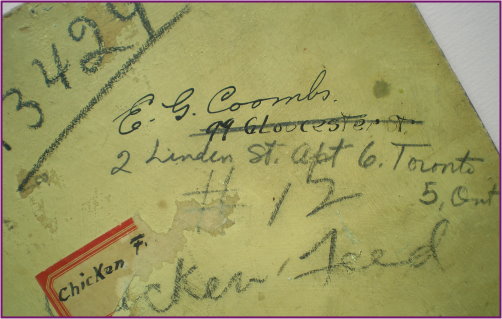 3429
E. G. Coombs.
99 Gloucester St.
2 Linden St. Apt 6. Toronto
5, Ont
# 12
Chicken F.
icken, Feed